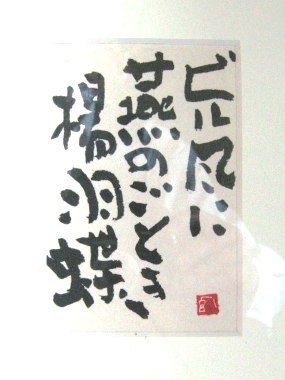 ビル風に
燕のごとき
揚羽蝶